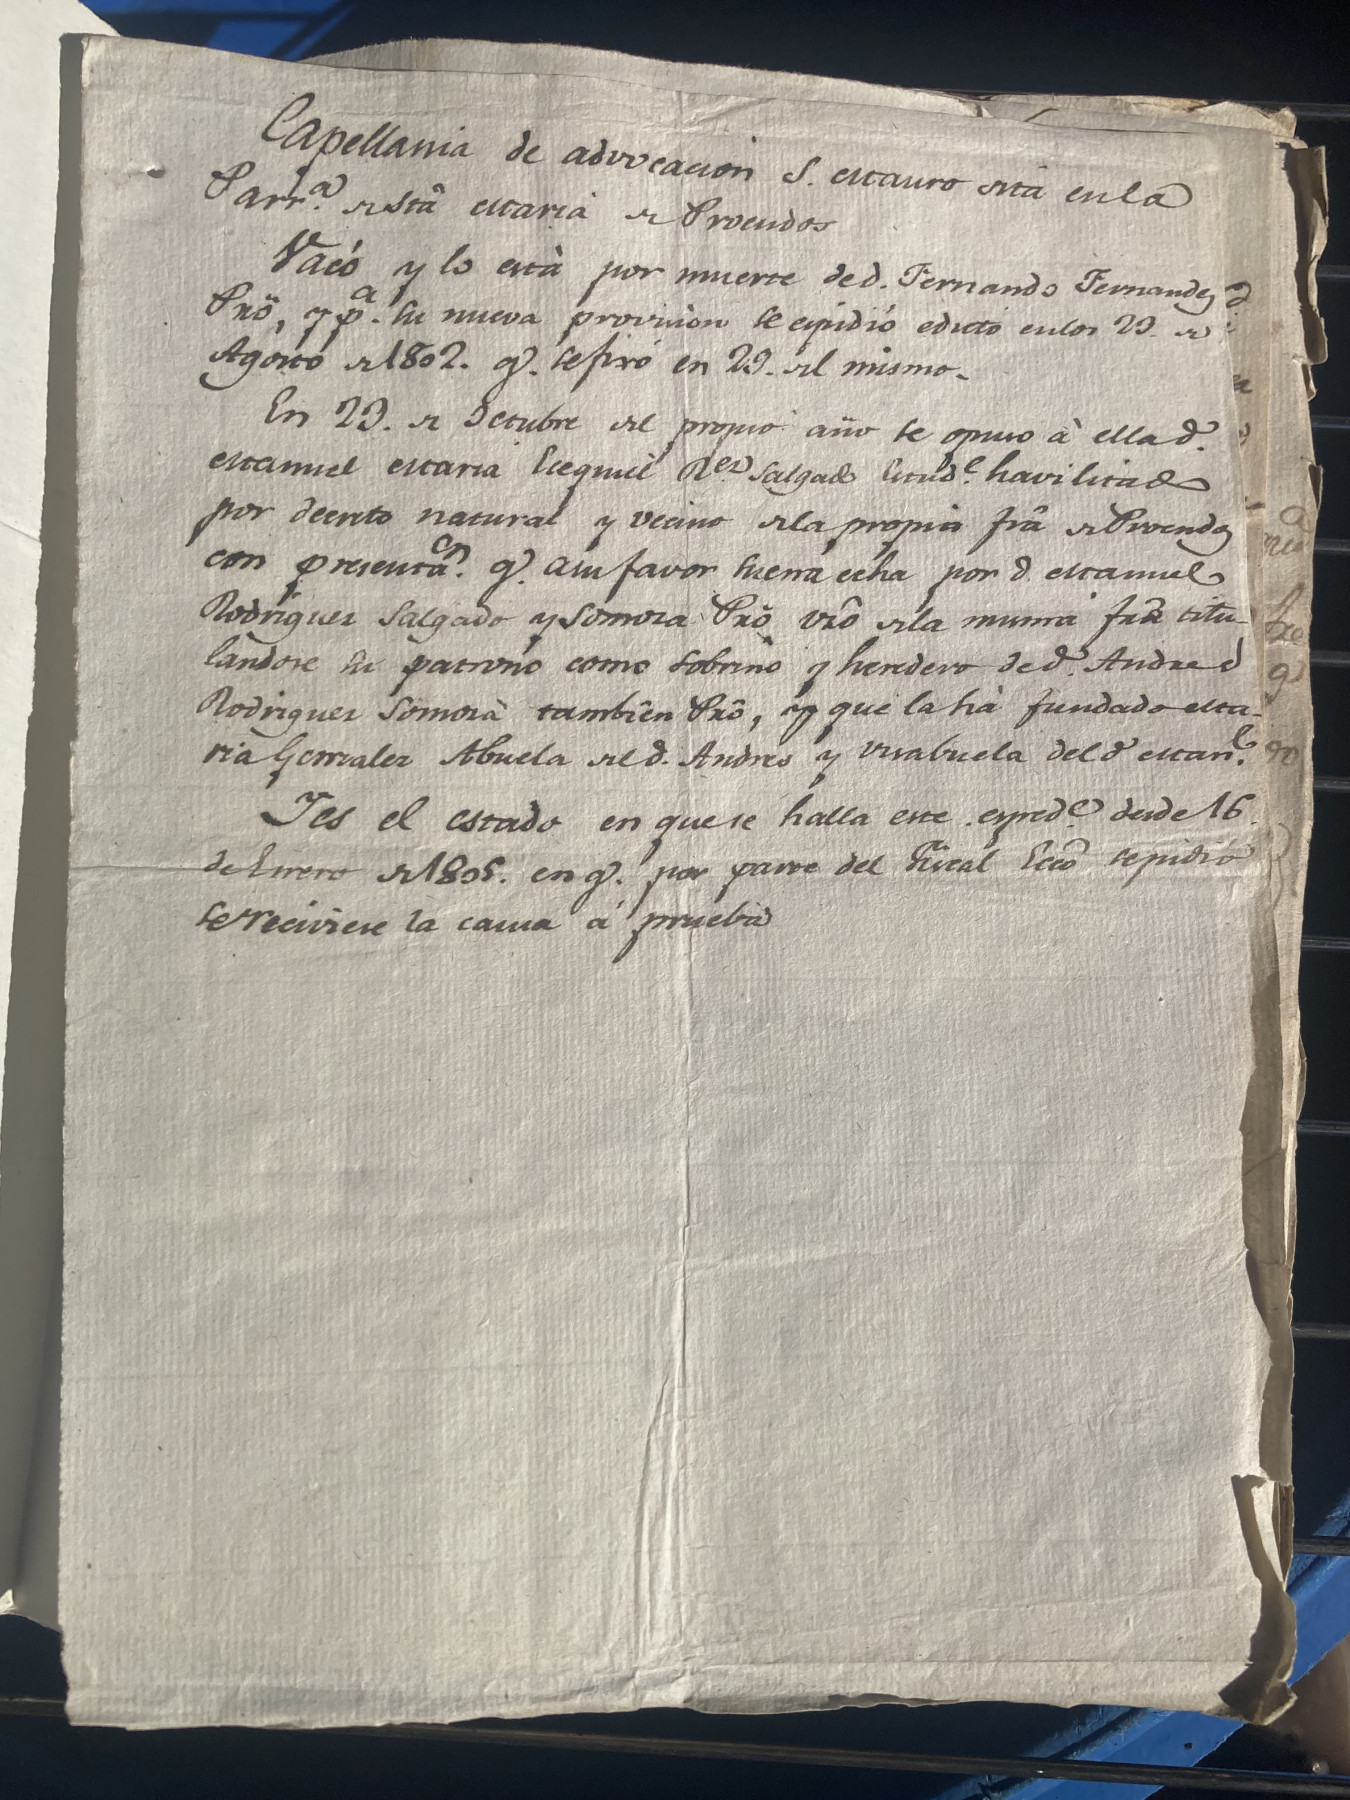 Capellania de advocacion S. Mauro sita en la
Parr.ª de Stâ Maria de Proendos
Vacó y lo està por muerte de d. Fernando Fernandez
Pŕo, y p.ª su nueva provision se expidió edicto en los 23. de
Agosto de 1802. q.e se fixó en 29. del mismo.
En 23. de Octubre del propio año se opuso à ella d.n
Manuel Maria Ezequiel R.ez Salgado Estud.e havilitado
por decreto natural y vecino de la propia frâ de Proendos
con presentac.n q.e a su favor huviera echa por d. Manuel
Rodriguez Salgado y Somoza Pŕo vŕo de la misma frâ titu-
làndose su patrono como sobrino y heredero de d.n Andres
Rodriguez Somozà tambièn Pŕo, y que la hà fundado Ma-
ria Gonzalez Abuela del d. Andres y visabuela del d.n Man.l
Y es el estado en que se halla este exped.e desde 16
de Enero de 1805. en q.e por parte del Fiscal Ecco se pidió
se reciviese la causa á prueba